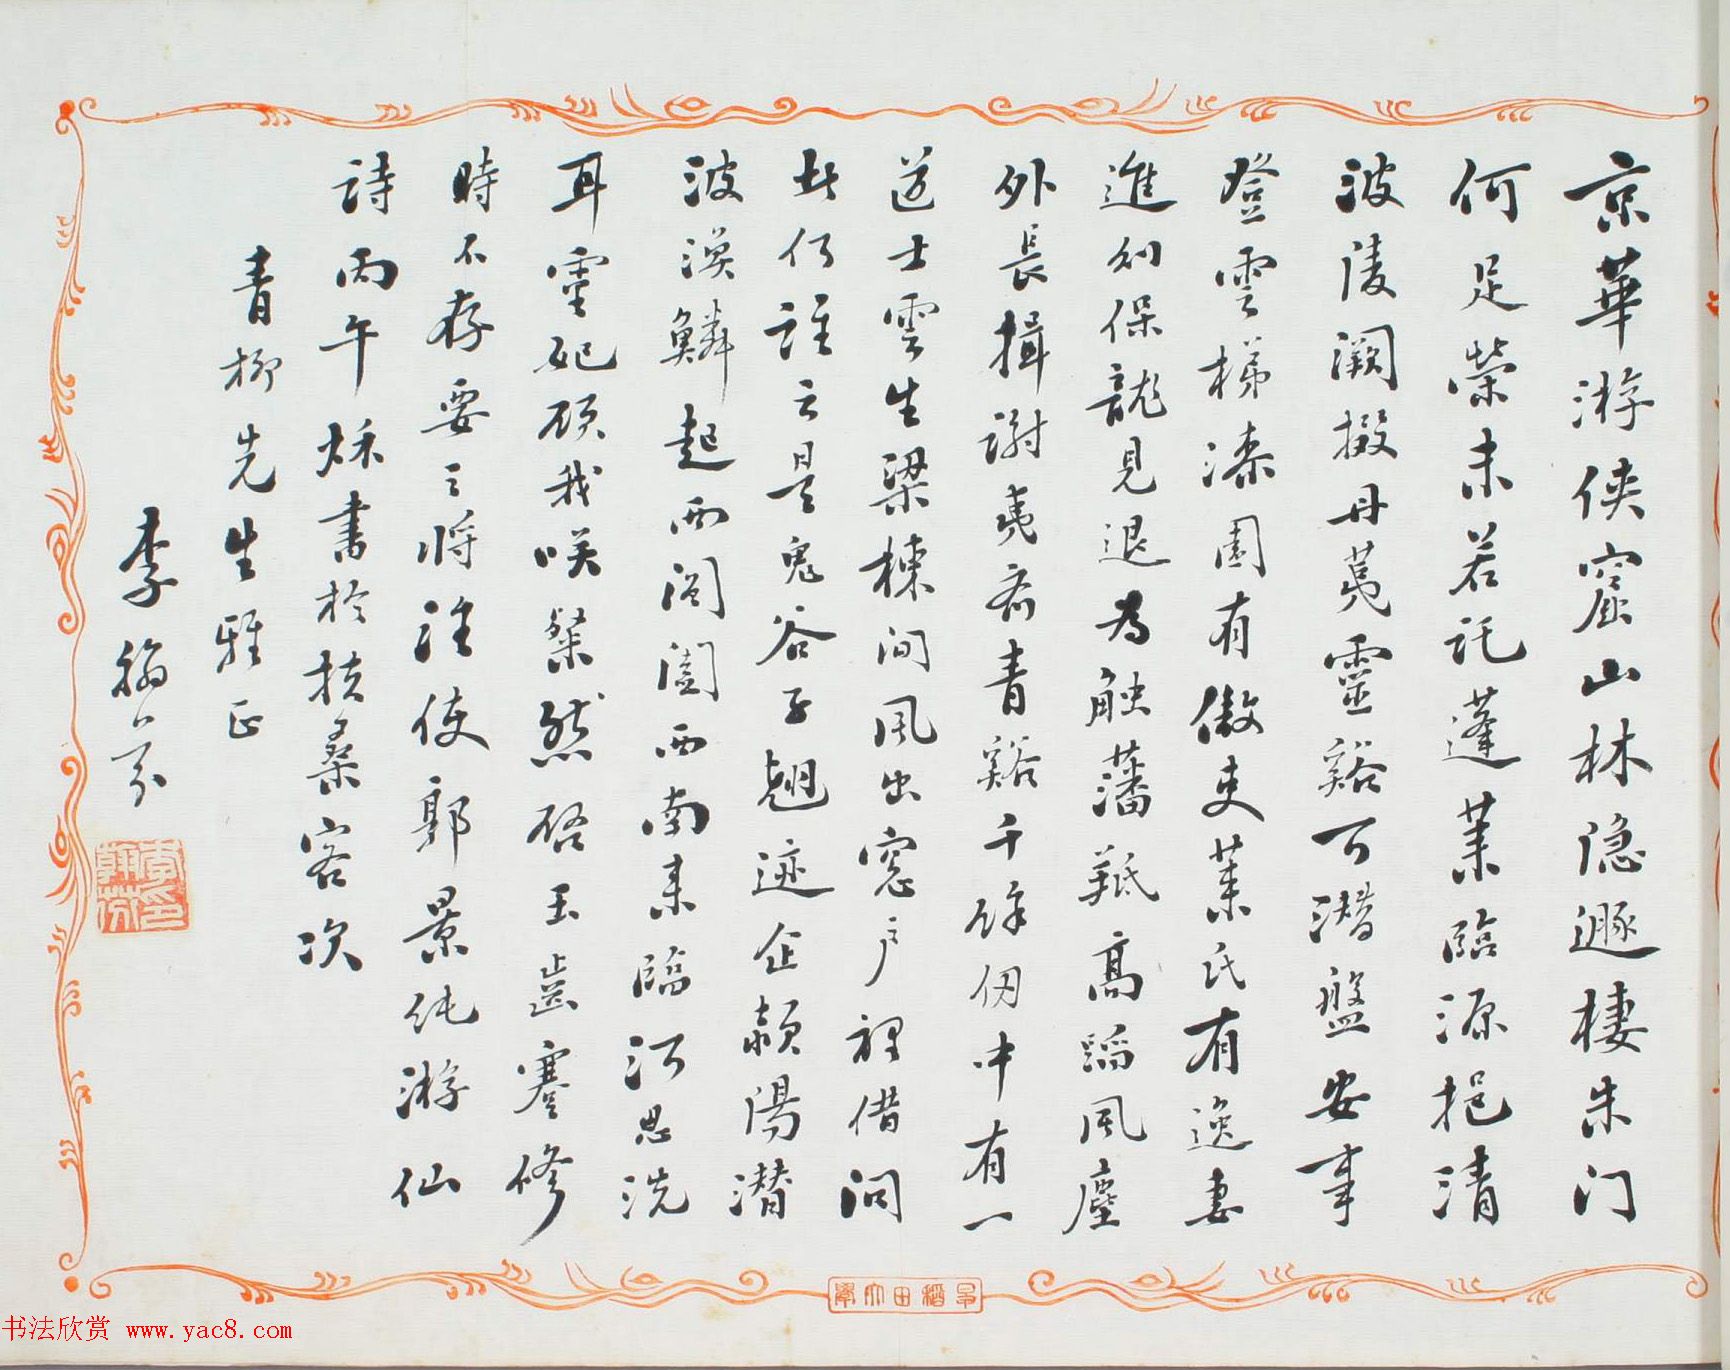 京華游俠窟山林隐遯棲朱门
何足榮未若託蓬萊臨源挹清
波陵掇丹荑靈谿可潛盤安事
登雲梯漆園有傲吏萊氏有逸妻
進則保龍見退為觸藩羝高蹈風塵
外長揖謝夷齊青谿千餘仞中有一
道士雲生梁棟间風出窓户裡借问
此何誰云是鬼谷子翘迹企颍陽潛
波渙鱗起西閶闔西南来臨河思洗
耳靈妃顾我咲粲然啓玉齒蹇修
時不存要之将誰使郭景純游仙
詩丙午秌書於扶桑客次
青柳先生雅正
李翰芬
李翰芬印
早稻田大學
书法欣赏 www.yac8.com